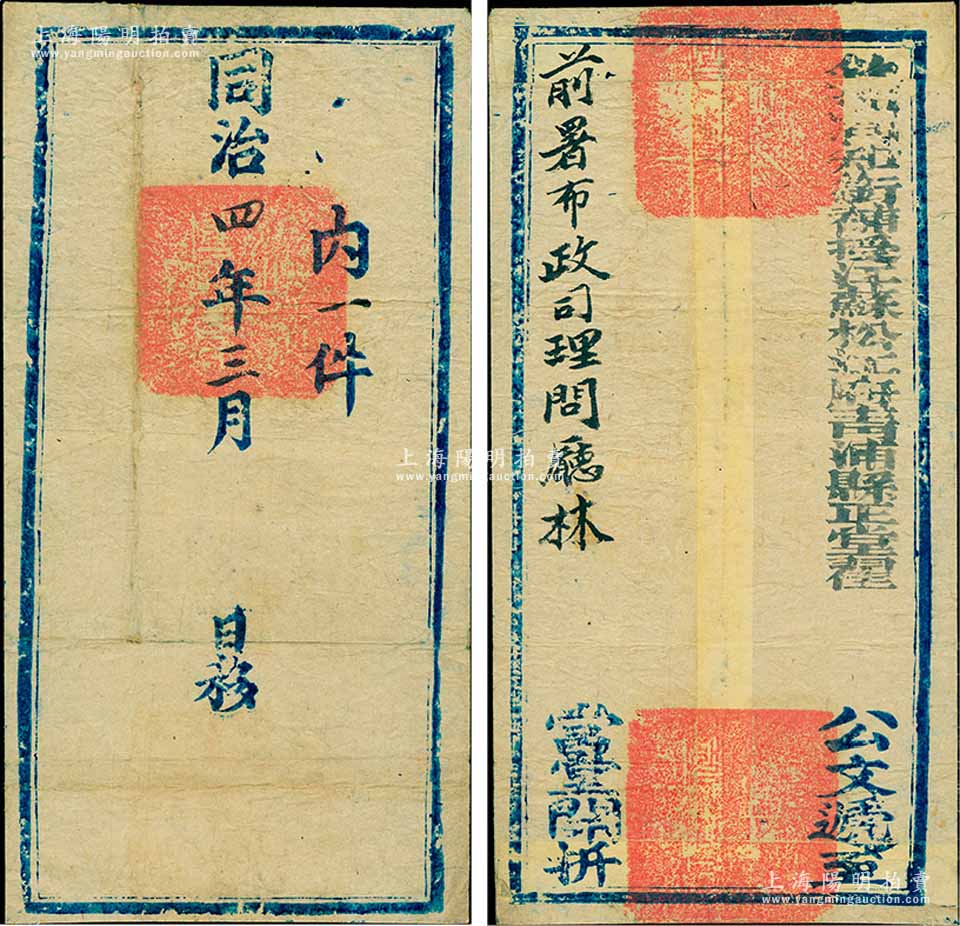 上海陽明拍賣
www.yangmingauction.com
內一件
同治四年三月 日務
上海陽明拍賣
www.yangmingauction.com
銜補授江蘇松江府青浦縣正堂
公文遞至
前署布政司理問廳林
當堂開拆
上海陽明拍賣
www.yangmingauction.com
上海陽明拍賣
www.yangmingauction.com